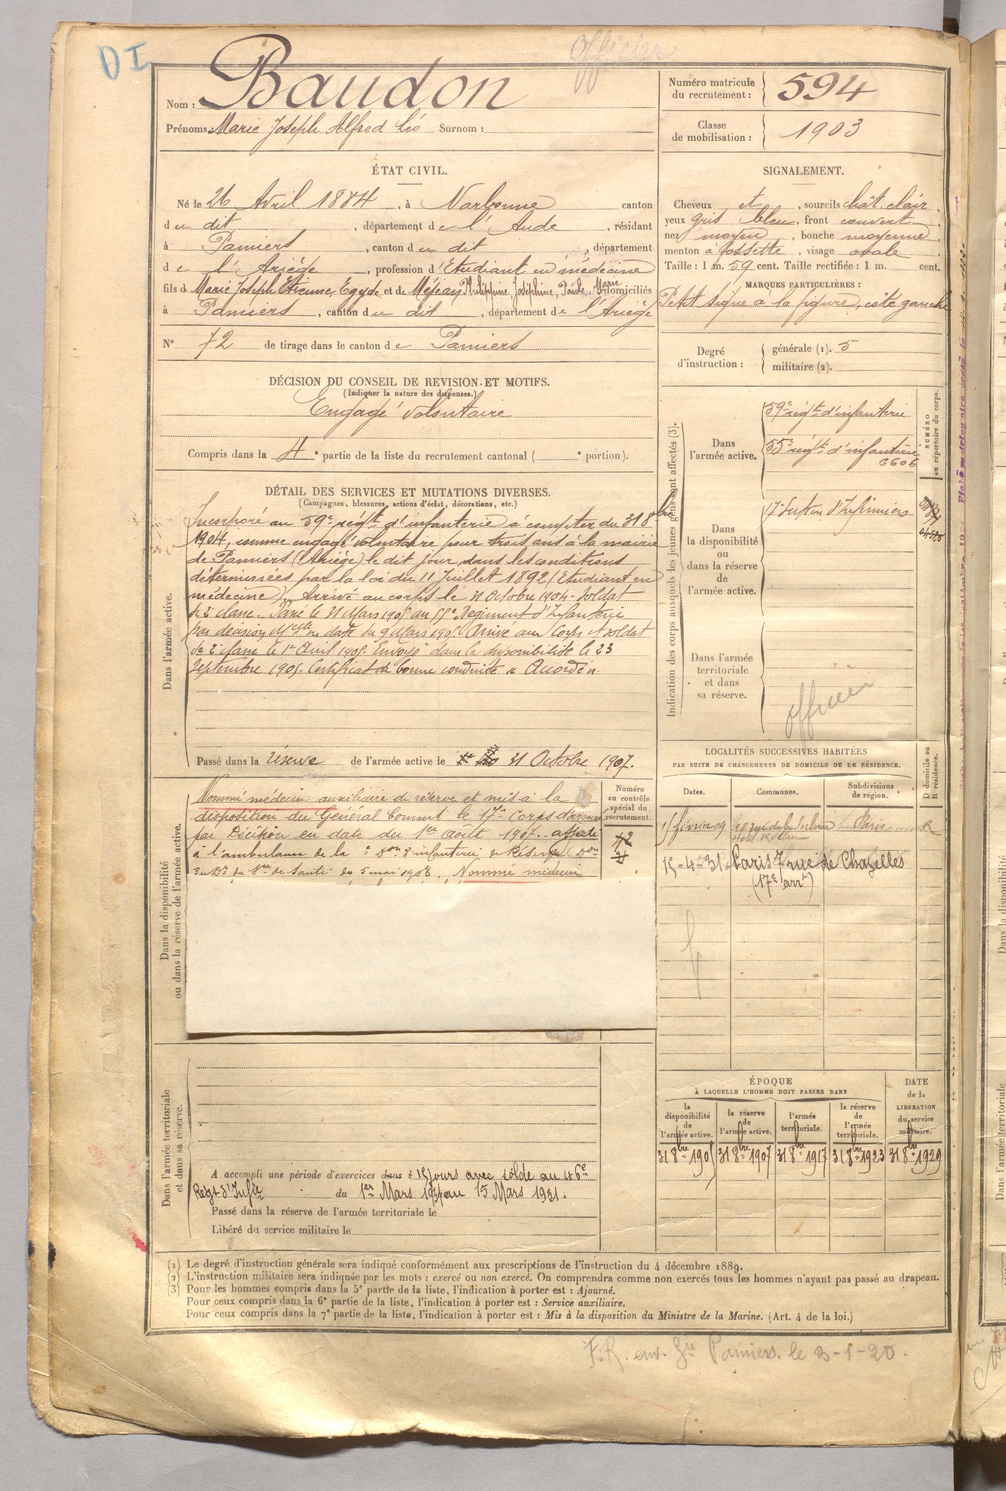 DI
Officier
Nom : Baudon
Prénoms : Marie Joseph Alfred Léo Surnom :
Numéro matricule du recrutement : 594
Classe de mobilisation : 1903
ÉTAT CIVIL.
Né le 26 Avril 1884, à Narbonne canton
d u dit, département de l'Aude, résidant
à Pamiers, canton d u dit, département
d e l'Ariège, profession d'Etudiant en médecine
fils d Marie Joseph Etienne Egyde et de Méjean Philippine, Joséphine, Paule, Marie domiciliés
à Pamiers, canton d u dit, département de l'Ariège
N° 72 de tirage dans le canton d e Pamiers
SIGNALEMENT.
Cheveux et, sourcils chât clair
yeux gris bleu, front couvert
nez moyen, bouche moyenne
menton à fossette, visage ovale
Taille : 1 m. 59 cent. Taille rectifiée : 1 m. cent.
MARQUES PARTICULIÈRES :
Petit signe à la figure, côté gauche
Degré d'instruction : générale (1). 5
militaire (2).
DÉCISION DU CONSEIL DE REVISION ET MOTIFS.
(Indiquer la nature des dispenses.)
Engagé volontaire
Compris dans la 4e partie de la liste du recrutement cantonal ( e portion).
DÉTAIL DES SERVICES ET MUTATIONS DIVERSES.
(Campagnes, blessures, actions d'éclat, décorations, etc.)
Dans l'armée active.
Incorporé au 59e régt d'infanterie à compter du 31 8bre
1904, comme engagé volontaire pour trois ans à la mairie
de Pamiers (Ariège) le dit jour, dans les conditions
déterminées par la loi du 11 Juillet 1892 (Etudiant en
médecine). Arrivé au corps le 31 Octobre 1904 soldat
de 2e classe. Passé le 21 Mars 1905 au 55e Régiment d'Infanterie
par décision Mlle en date du 9 Mars 1905. Arrivé au Corps et soldat
de 2e classe le 1er Avril 1905. Envoyé dans la disponibilité le 23
Septembre 1905. Certificat de bonne conduite "Accordé".
Passé dans la réserve de l'armée active le 31 Octobre 1907.
Indication des corps auxquels les jeunes gens sont affectés (3).
NUMÉRO au répertoire du corps.
Dans l'armée active.
59e régt d'infanterie
55e régt d'infanterie
6606
Dans la disponibilité ou dans la réserve de l'armée active.
17e Section d'Infirmiers
Dans l'armée territoriale et dans sa réserve.
officier
Dans la disponibilité ou dans la réserve de l'armée active.
Numéro au contrôle spécial du recrutement.
Nommé médecin auxiliaire de réserve et mis à la
disposition du Général Commt le 17e Corps d'armée
par Décision en date du 1er Août 1907. affecté
à l'ambulance de la e Don d'infanterie de Réserve
du 5 mai 1908. Nommé médecin
LOCALITÉS SUCCESSIVES HABITÉES
PAR SUITE DE CHANGEMENTS DE DOMICILE OU DE RÉSIDENCE.
Dates. Communes. Subdivisions de région. D domicile ou R résidence.
15 février 09 Paris R
15-4-31 Paris 7 rue de Chazelles
(17e arrt)
ÉPOQUE
À LAQUELLE L'HOMME DOIT PASSER DANS
la disponibilité de l'armée active. la réserve de l'armée active. l'armée territoriale. la réserve de l'armée territoriale. DATE de la LIBÉRATION du service militaire.
31 8bre 1905 31 8bre 1907 31 8bre 1917 31 8bre 1923 31 8bre 1929
Dans l'armée territoriale et dans sa réserve.
A accompli une période d'exercices dans 15 jours avec solde au 46e
Régt d'Infie du 1er Mars 1931 au 15 Mars 1931.
Passé dans la réserve de l'armée territoriale le
Libéré du service militaire le
(1) Le degré d'instruction générale sera indiqué conformément aux prescriptions de l'instruction du 4 décembre 1889.
(2) L'instruction militaire sera indiquée par les mots : exercé ou non exercé. On comprendra comme non exercés tous les hommes n'ayant pas passé au drapeau.
(3) Pour les hommes compris dans la 5e partie de la liste, l'indication à porter est : Ajourné.
Pour ceux compris dans la 6e partie de la liste, l'indication à porter est : Service auxiliaire.
Pour ceux compris dans la 7e partie de la liste, l'indication à porter est : Mis à la disposition du Ministre de la Marine. (Art. 4 de la loi.)
F.R. env. Gie Pamiers le 3-1-20.